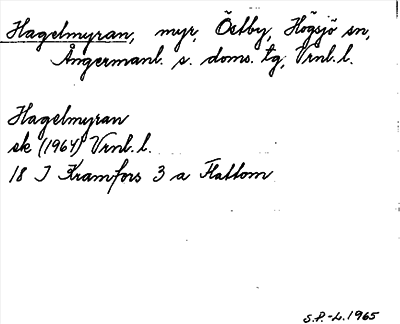 Hagelmyran, myr, Östby, Högsjö sn,
Ångermanl. s. doms. tg, Vrnl. l.
Hagelmyran
ek (1964) Vrnl. l.
18 I Kramfors 3 a Flattom
S.P.-L. 1965